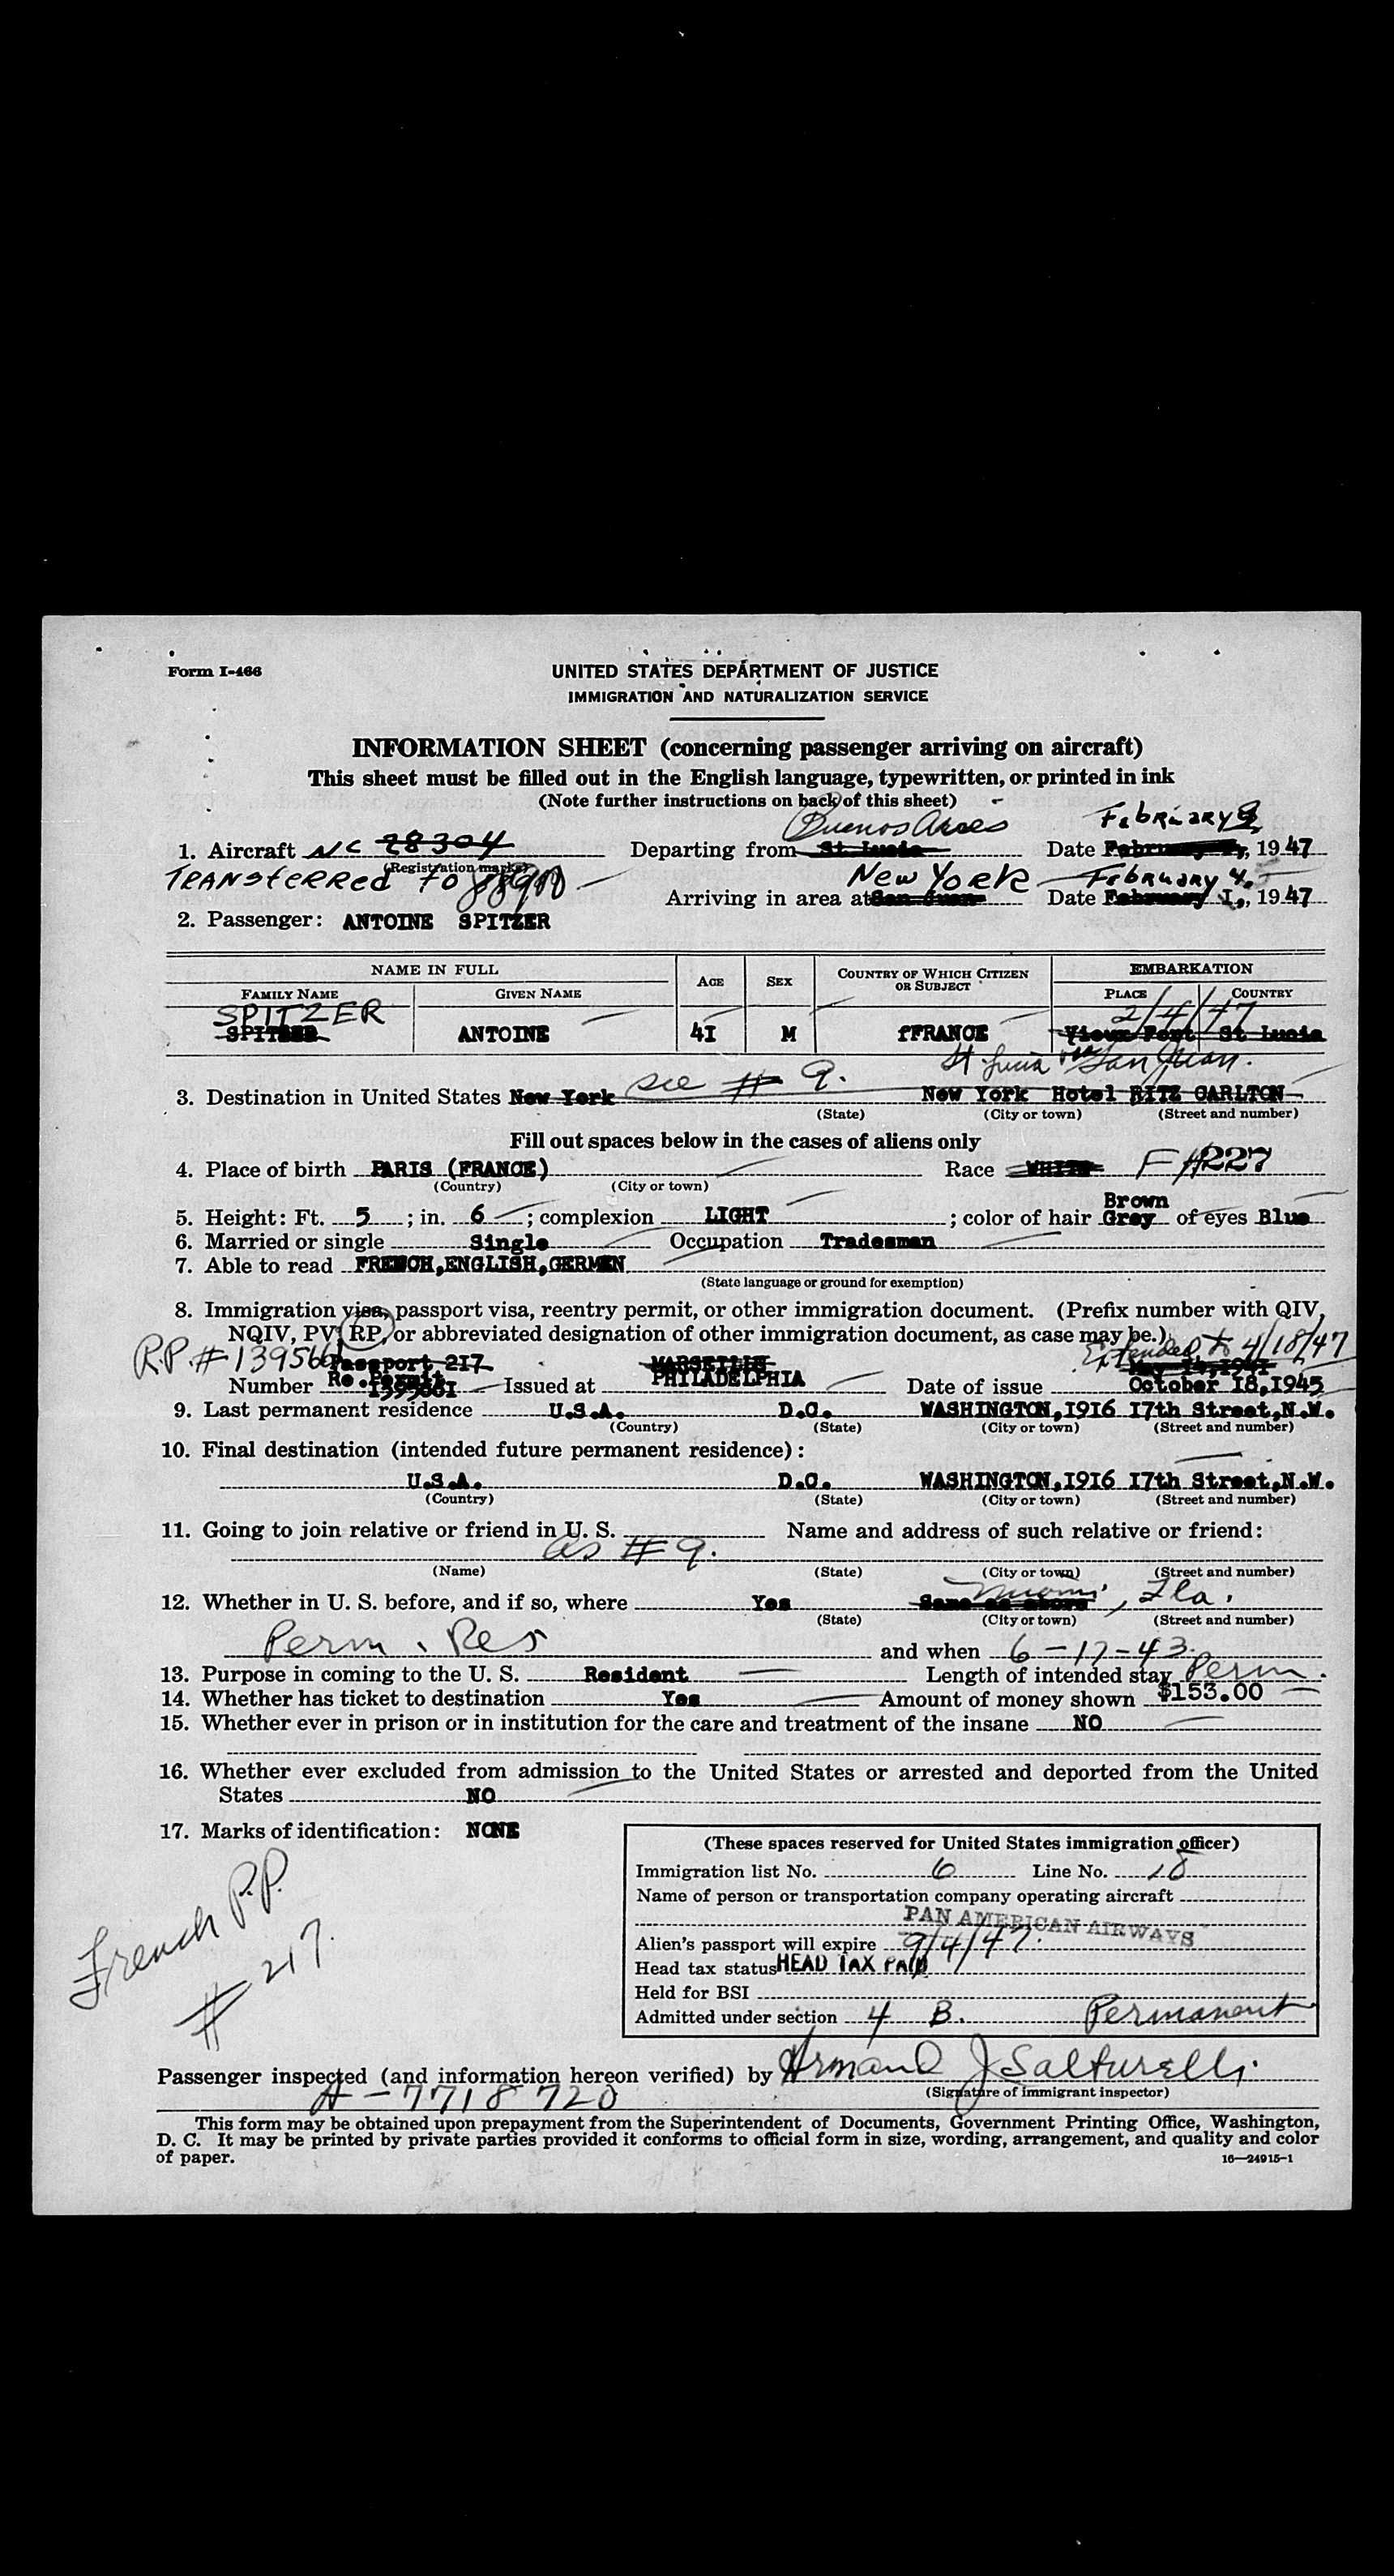 Form I-466
UNITED STATES DEPARTMENT OF JUSTICE
IMMIGRATION AND NATURALIZATION SERVICE
INFORMATION SHEET (concerning passenger arriving on aircraft)
This sheet must be filled out in the English language, typewritten, or printed in ink
(Note further instructions on back of this sheet)
Buenos Aires February
1. Aircraft NC 28304 Departing from St Lucia Date February, 1947
(Registration marks)
TRANSFERRED TO New York February 4.
Arriving in area at San Juan Date February I., 1947
2. Passenger: ANTOINE SPITZER
NAME IN FULL AGE SEX COUNTRY OF WHICH CITIZEN OR SUBJECT EMBARKATION
FAMILY NAME GIVEN NAME PLACE COUNTRY
SPITZER 2/4/47
SPITZER ANTOINE 4I M fFRANCE Vieux Fort St Lucia
St. Lucia via San Juan.
3. Destination in United States New York see # 9. New York Hotel RITZ CARLTON
(State) (City or town) (Street and number)
Fill out spaces below in the cases of aliens only
4. Place of birth PARIS (FRANCE) Race WHITE F #227
(Country) (City or town)
Brown
5. Height: Ft. 5; in. 6; complexion LIGHT; color of hair Grey of eyes Blue
6. Married or single Single Occupation Tradesman
7. Able to read FRENCH,ENGLISH,GERMEN
(State language or ground for exemption)
8. Immigration visa, passport visa, reentry permit, or other immigration document. (Prefix number with QIV,
NQIV, PV, RP, or abbreviated designation of other immigration document, as case may be.)
R.P. # 1395661 Passport 217 MARSEILLE Extended to 4/18/47
Re.Permit
Number 1395661 Issued at PHILADELPHIA Date of issue October I8,I945
9. Last permanent residence U.S.A. D.C. WASHINGTON,I9I6 I7th Street,N.W.
(Country) (State) (City or town) (Street and number)
10. Final destination (intended future permanent residence):
U.S.A. D.C. WASHINGTON,I9I6 I7th Street,N.W.
(Country) (State) (City or town) (Street and number)
11. Going to join relative or friend in U. S. Name and address of such relative or friend:
as # 9.
(Name) (State) (City or town) (Street and number)
Miami, Fla.
12. Whether in U. S. before, and if so, where Yes Same as above
(State) (City or town) (Street and number)
Perm. Res and when 6-17-43.
13. Purpose in coming to the U. S. Resident Length of intended stay Perm.
14. Whether has ticket to destination Yes Amount of money shown $153.00
15. Whether ever in prison or in institution for the care and treatment of the insane NO
16. Whether ever excluded from admission to the United States or arrested and deported from the United
States NO
17. Marks of identification: NONE
French P.P.
# 217.
(These spaces reserved for United States immigration officer)
Immigration list No. 6 Line No. 18
Name of person or transportation company operating aircraft
PAN AMERICAN AIRWAYS
Alien's passport will expire 9/4/47.
Head tax status HEAD TAX PAID
Held for BSI
Admitted under section 4 B. Permanent
Passenger inspected (and information hereon verified) by Armand J Salturelli
(Signature of immigrant inspector)
A-7718720
This form may be obtained upon prepayment from the Superintendent of Documents, Government Printing Office, Washington,
D. C. It may be printed by private parties provided it conforms to official form in size, wording, arrangement, and quality and color
of paper.
16—24915-1